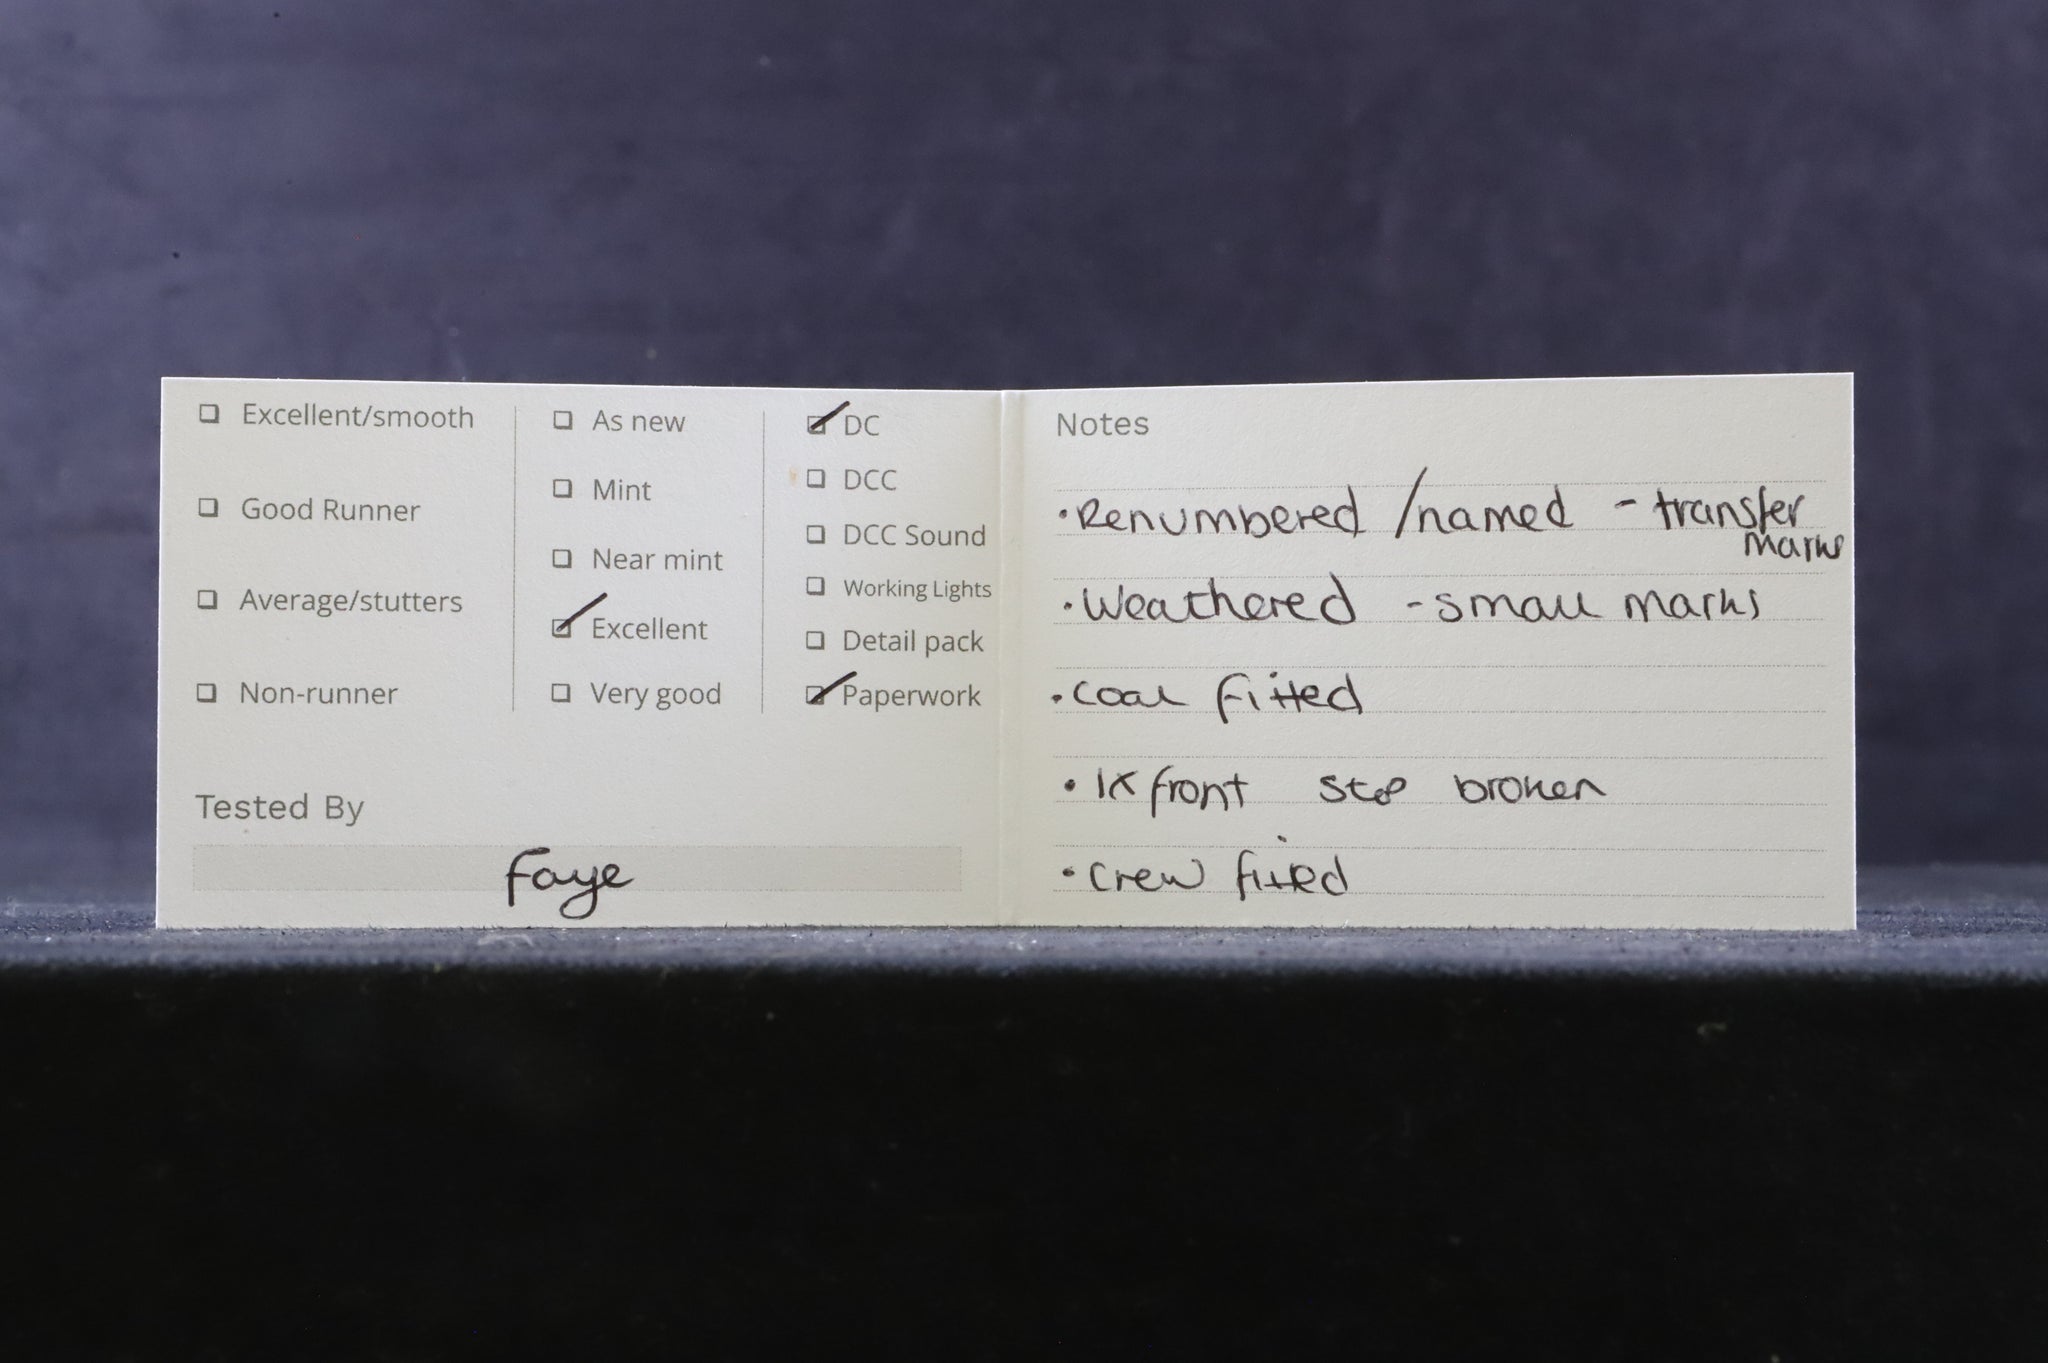 Excellent/smooth
Good Runner
Average/stutters
Non-runner
As new
Mint
Near mint
Excellent
Very good
DC
DCC
DCC Sound
Working Lights
Detail pack
Paperwork
Tested By
Faye
Notes
• Renumbered /named - transfer
marks
• Weathered - small marks
• coal fitted
• 1x front step broken
• crew fitted